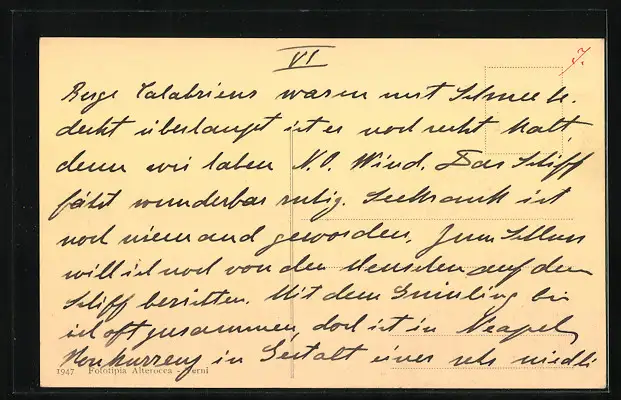 VI
Berge Calabriens waren mit Schnee be-
deckt überhaupt ist es noch recht kalt,
denn wir haben N.O. Wind. Das Schiff
fährt wunderbar ruhig. Seekrank ist
noch niemand geworden. Zum Schluss
will ich noch von den Menschen auf dem
Schiff berichten. Mit dem bin
ich oft zusammen, doch ist in Neapel
Konkurrenz in Gestalt einer sehr niedli
1947 Fototipia Alterocca - Terni